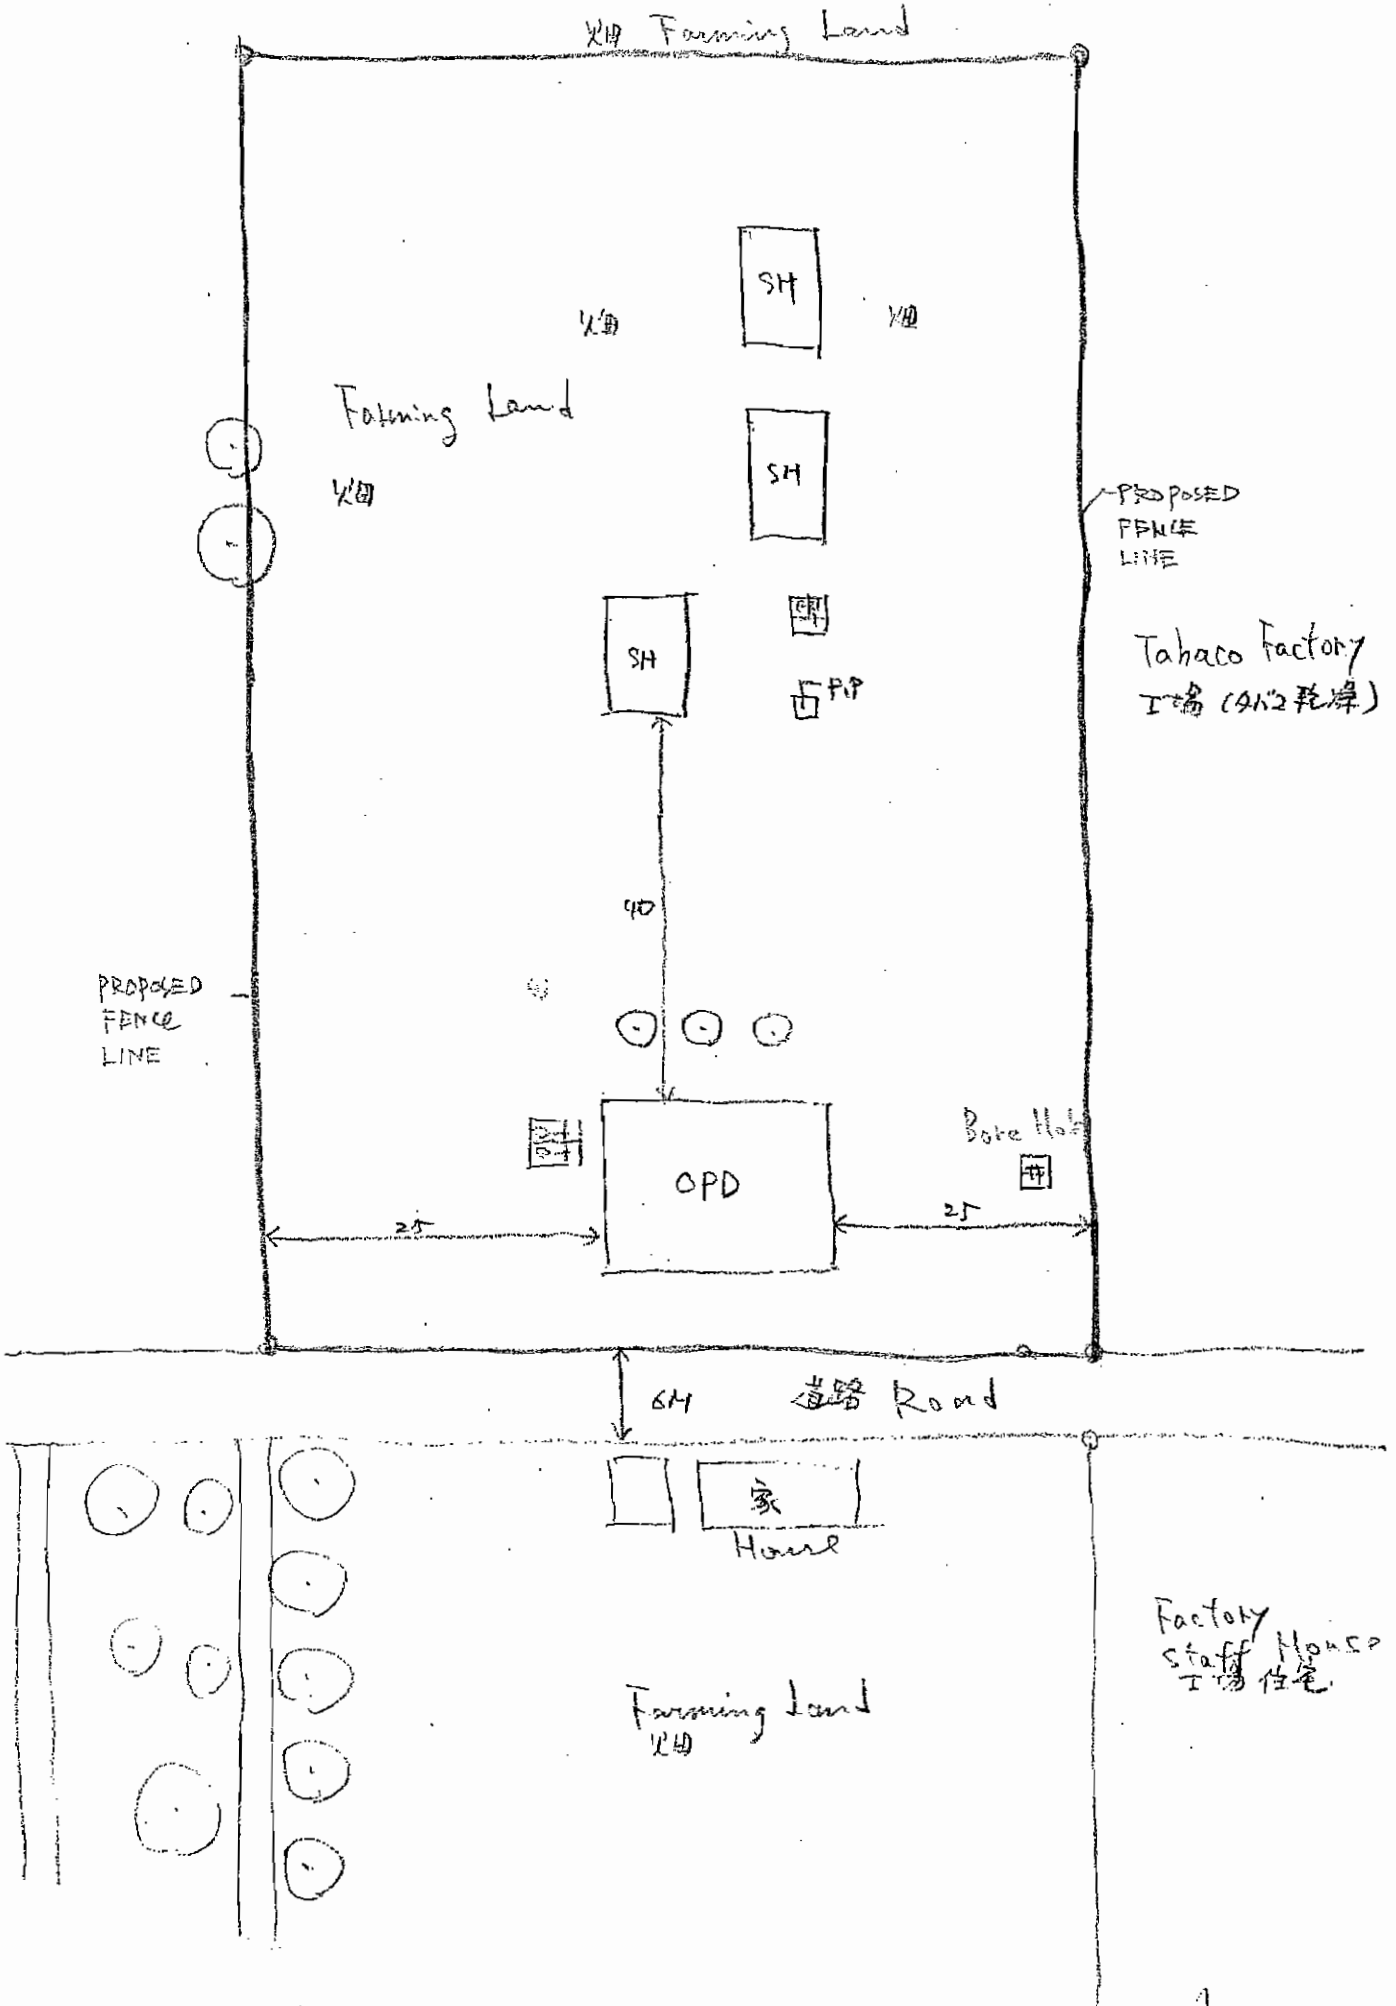 畑 Farming Land
SH
畑
畑
Farming Land
SH
畑
PROPOSED
FENCE
LINE
SH
PiP
Tabaco Factory
工場(タバコ乾燥)
40
PROPOSED
FENCE
LINE
Bore Hole
井
OPD
25
25
6M
道路 Road
家
House
Factory
Staff House
工場住宅
Farming Land
畑